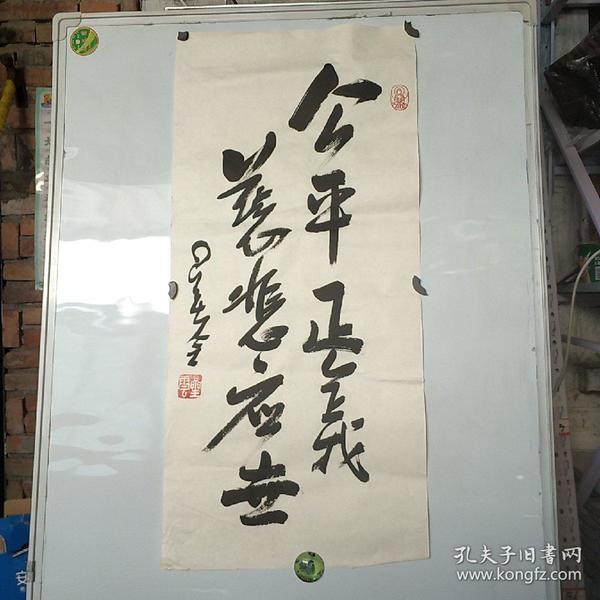 公平正義
慈悲应世
孔夫子旧書网
www.kongfz.com
安